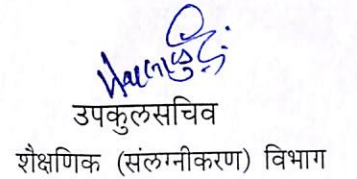 उपकुलसचिव
शैक्षणिक (संलग्नीकरण) विभाग